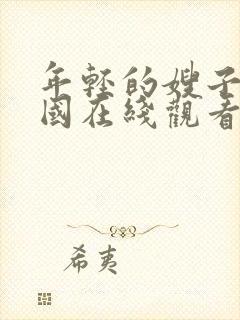 年轻的嫂子
國在綫觀看
希夷